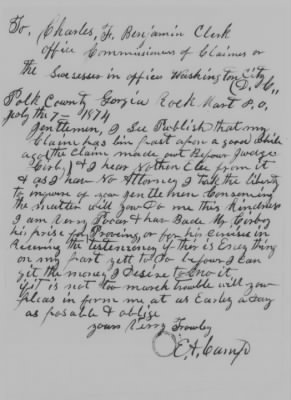 To, Charles, F. Benjamin Clerk
office Commissioners of Claimes or
the Sucseser in office Washington City
(D, C,,
Polk County Gorgia Rock Mart P.O,
July th 7 1874
Gentlemen, I See Publish that my
Claime has bin past upon a good while
ago the Claime made out Befour Juedge
& I hear Nothen Elce from it
& as I have No Attorney I take the liberty
to inquire of you Gentlemen Concerning
the matter will you Do me this Kindness
I am very Pooar & have
his prise for Proveing or for his Cervise in
the testemoney if ther is Eney thing
on my part yett to Do befour I Can
git the money I Desire to no it
if it is not too mutch trouble will you
Pleas in form me at as Earley a day
as posable & oblige
yours Verry Trouley
E, A, Camp